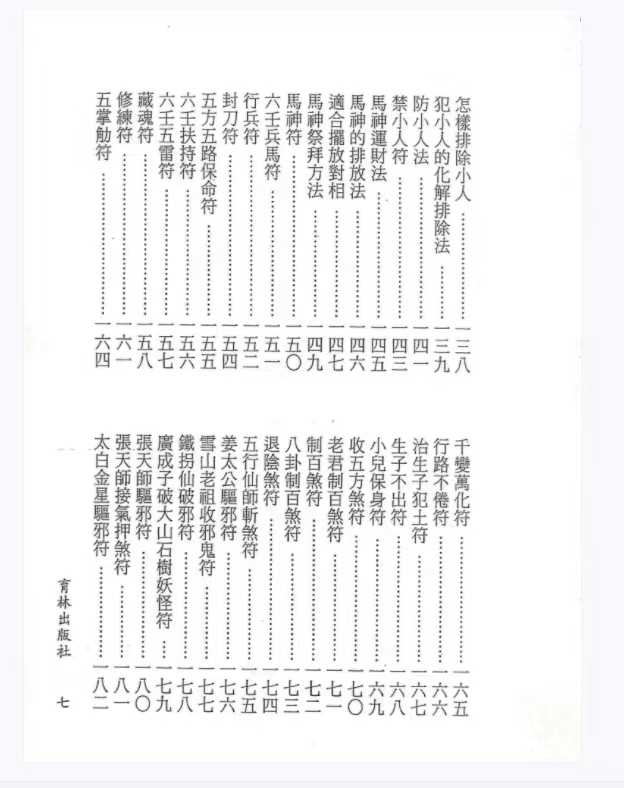 怎樣排除小人⋯⋯⋯⋯一三八
犯小人的化解排除法⋯⋯⋯⋯一三九
防小人法⋯⋯⋯⋯一四一
禁小人符⋯⋯⋯⋯一四三
馬神運財法⋯⋯⋯⋯一四五
馬神的排放法⋯⋯⋯⋯一四六
適合擺放對相⋯⋯⋯⋯一四七
馬神祭拜方法⋯⋯⋯⋯一四九
馬神符⋯⋯⋯⋯一五〇
六壬兵馬符⋯⋯⋯⋯一五一
行兵符⋯⋯⋯⋯一五二
封刀符⋯⋯⋯⋯一五四
五方五路保命符⋯⋯⋯⋯一五五
六壬扶持符⋯⋯⋯⋯一五六
六壬五雷符⋯⋯⋯⋯一五七
藏魂符⋯⋯⋯⋯一五八
修練符⋯⋯⋯⋯一六一
五掌觔符⋯⋯⋯⋯一六四
千變萬化符⋯⋯⋯⋯一六五
行路不倦符⋯⋯⋯⋯一六六
治生子犯土符⋯⋯⋯⋯一六七
生子不出符⋯⋯⋯⋯一六八
小兒保身符⋯⋯⋯⋯一六九
收五方煞符⋯⋯⋯⋯一七〇
老君制百煞符⋯⋯⋯⋯一七一
制百煞符⋯⋯⋯⋯一七二
八卦制百煞符⋯⋯⋯⋯一七三
退陰煞符⋯⋯⋯⋯一七四
五行仙師斬煞符⋯⋯⋯⋯一七五
姜太公驅邪符⋯⋯⋯⋯一七六
雪山老祖收邪鬼符⋯⋯⋯⋯一七七
鐵拐仙破邪符⋯⋯⋯⋯一七八
廣成子破大山石樹妖怪符⋯⋯一七九
張天師驅邪符⋯⋯⋯⋯一八〇
張天師接氣押煞符⋯⋯⋯⋯一八一
太白金星驅邪符⋯⋯⋯⋯一八二
育林出版社 七